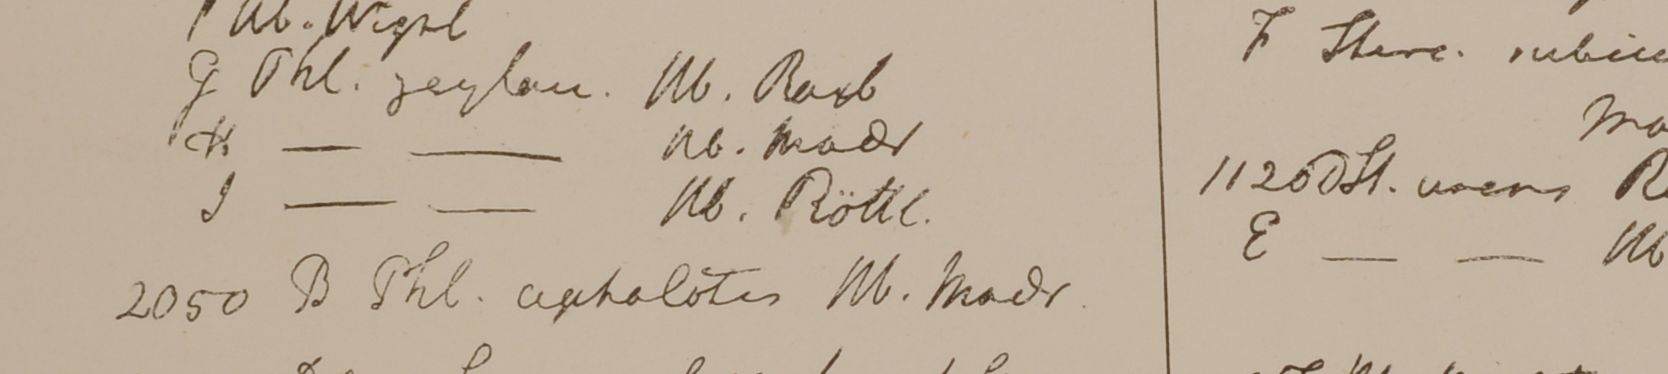 Hb. Wight
G Phl. zeylan. Hb. Roxb
H — — Hb. Madr
I — — Hb. Röttl.
2050 B Phl. cephalotes Hb. Madr.
F Sterc.
1120 D St. urens
E — —